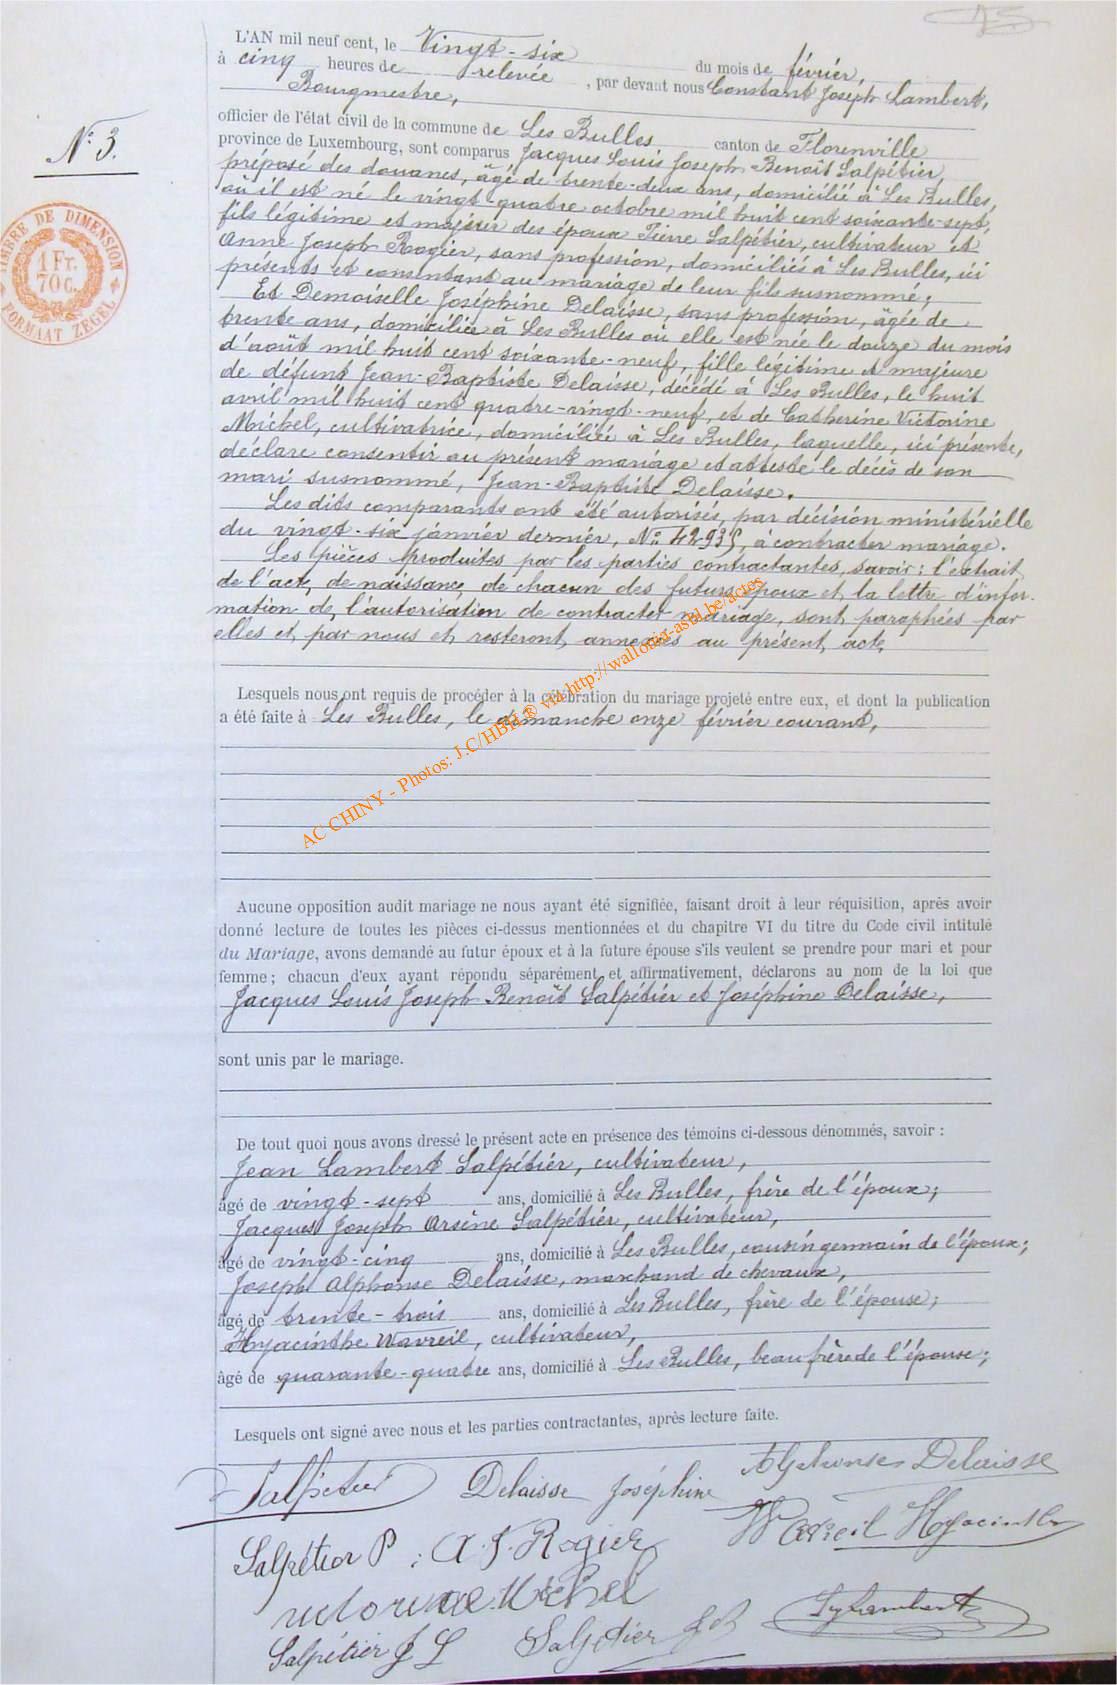 L'AN mil neuf cent, le Vingt-six du mois de février,
à cinq heures de relevée, par devant nous Constant Joseph Lambert,
Bourgmestre,
officier de l'état civil de la commune de Les Bulles canton de Florenville
province de Luxembourg, sont comparus Jacques Louis Joseph Benoît Salpétier
préposé des douanes, âgé de trente-deux ans, domicilié à Les Bulles,
où il est né le vingt quatre octobre mil huit cent soixante-sept,
fils légitime et majeur des époux Pierre Salpétier, cultivateur et
Anne Joseph Rogier, sans profession, domiciliés à Les Bulles, ici
présents et consentant au mariage de leur fils susnommé;
Et Demoiselle Joséphine Delaisse, sans profession, âgée de
trente ans, domiciliée à Les Bulles où elle est née le douze du mois
d'août mil huit cent soixante-neuf, fille légitime et majeure
de défunt Jean-Baptiste Delaisse, décédé à Les Bulles, le huit
avril mil huit cent quatre-vingt-neuf, et de Catherine Victorine
Michel, cultivatrice, domiciliée à Les Bulles, laquelle, ici présente,
déclare consentir au présent mariage et atteste le décès de son
mari susnommé, Jean-Baptiste Delaisse.
Les dits comparants ont été autorisés, par décision ministérielle
du vingt-six janvier dernier, N° 42935, à contracter mariage.
Les pièces produites par les parties contractantes, savoir: l'extrait
de l'acte de naissance de chacun des futurs époux et la lettre d'infor-
mation de l'autorisation de contracter mariage, sont paraphées par
elles et par nous et resteront annexées au présent acte.
N° 3.
TIMBRE DE DIMENSION
1 Fr.
70 C.
FORMAAT ZEGEL
Lesquels nous ont requis de procéder à la célébration du mariage projeté entre eux, et dont la publication
a été faite à Les Bulles, le dimanche onze février courant,
AC CHINY - Photos: J.C/HBH.® via http://wallonia-asbl.be/actes
Aucune opposition audit mariage ne nous ayant été signifiée, faisant droit à leur réquisition, après avoir
donné lecture de toutes les pièces ci-dessus mentionnées et du chapitre VI du titre du Code civil intitulé
du Mariage, avons demandé au futur époux et à la future épouse s'ils veulent se prendre pour mari et pour
femme; chacun d'eux ayant répondu séparément et affirmativement, déclarons au nom de la loi que
Jacques Louis Joseph Benoît Salpétier et Joséphine Delaisse,
sont unis par le mariage.
De tout quoi nous avons dressé le présent acte en présence des témoins ci-dessous dénommés, savoir :
Jean Lambert Salpétier, cultivateur,
âgé de vingt-sept ans, domicilié à Les Bulles, frère de l'époux;
Jacques Joseph Arsène Salpétier, cultivateur,
âgé de vingt-cinq ans, domicilié à Les Bulles, cousin germain de l'époux;
Joseph Alphonse Delaisse, marchand de chevaux,
âgé de trente-trois ans, domicilié à Les Bulles, frère de l'épouse;
Hyacinthe Wavreil, cultivateur,
âgé de quarante-quatre ans, domicilié à Les Bulles, beau frère de l'épouse;
Lesquels ont signé avec nous et les parties contractantes, après lecture faite.
Salpétier Delaisse Joséphine Alphonse Delaisse
Wavreil Hyacinthe
Salpétier P. A. J. Rogier
Victorine Michel
Salpétier J L Salpétier Lambert